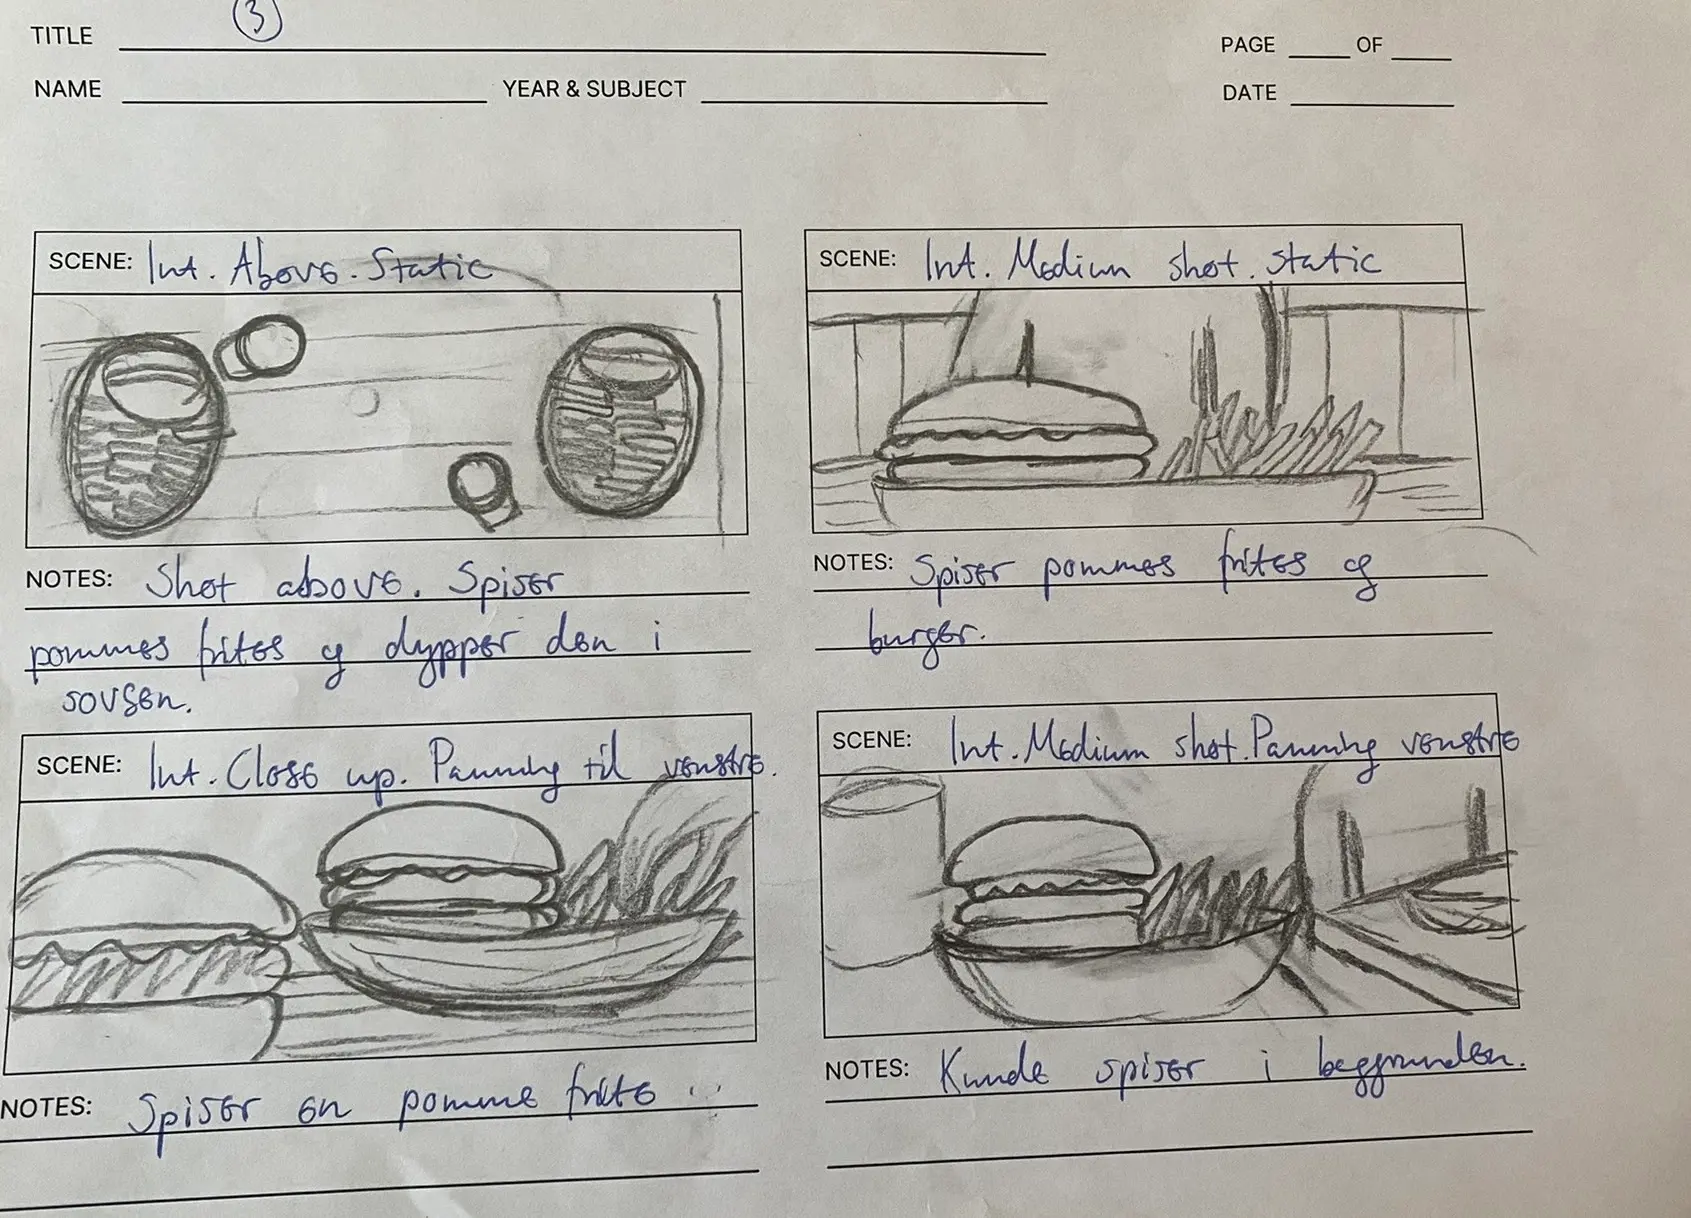 TITLE 3
PAGE OF
NAME YEAR & SUBJECT
DATE
SCENE: Int. Above. Static
NOTES: Shot above. Spiser
pommes frites og dypper den i
sovsen.
SCENE: Int. Medium shot. static
NOTES: Spiser pommes frites og
burger.
SCENE: Int. Close up. Panning til venstre.
NOTES: Spiser en pomme frite
SCENE: Int. Medium shot. Panning venstre
NOTES: Kunde spiser i baggrunden.